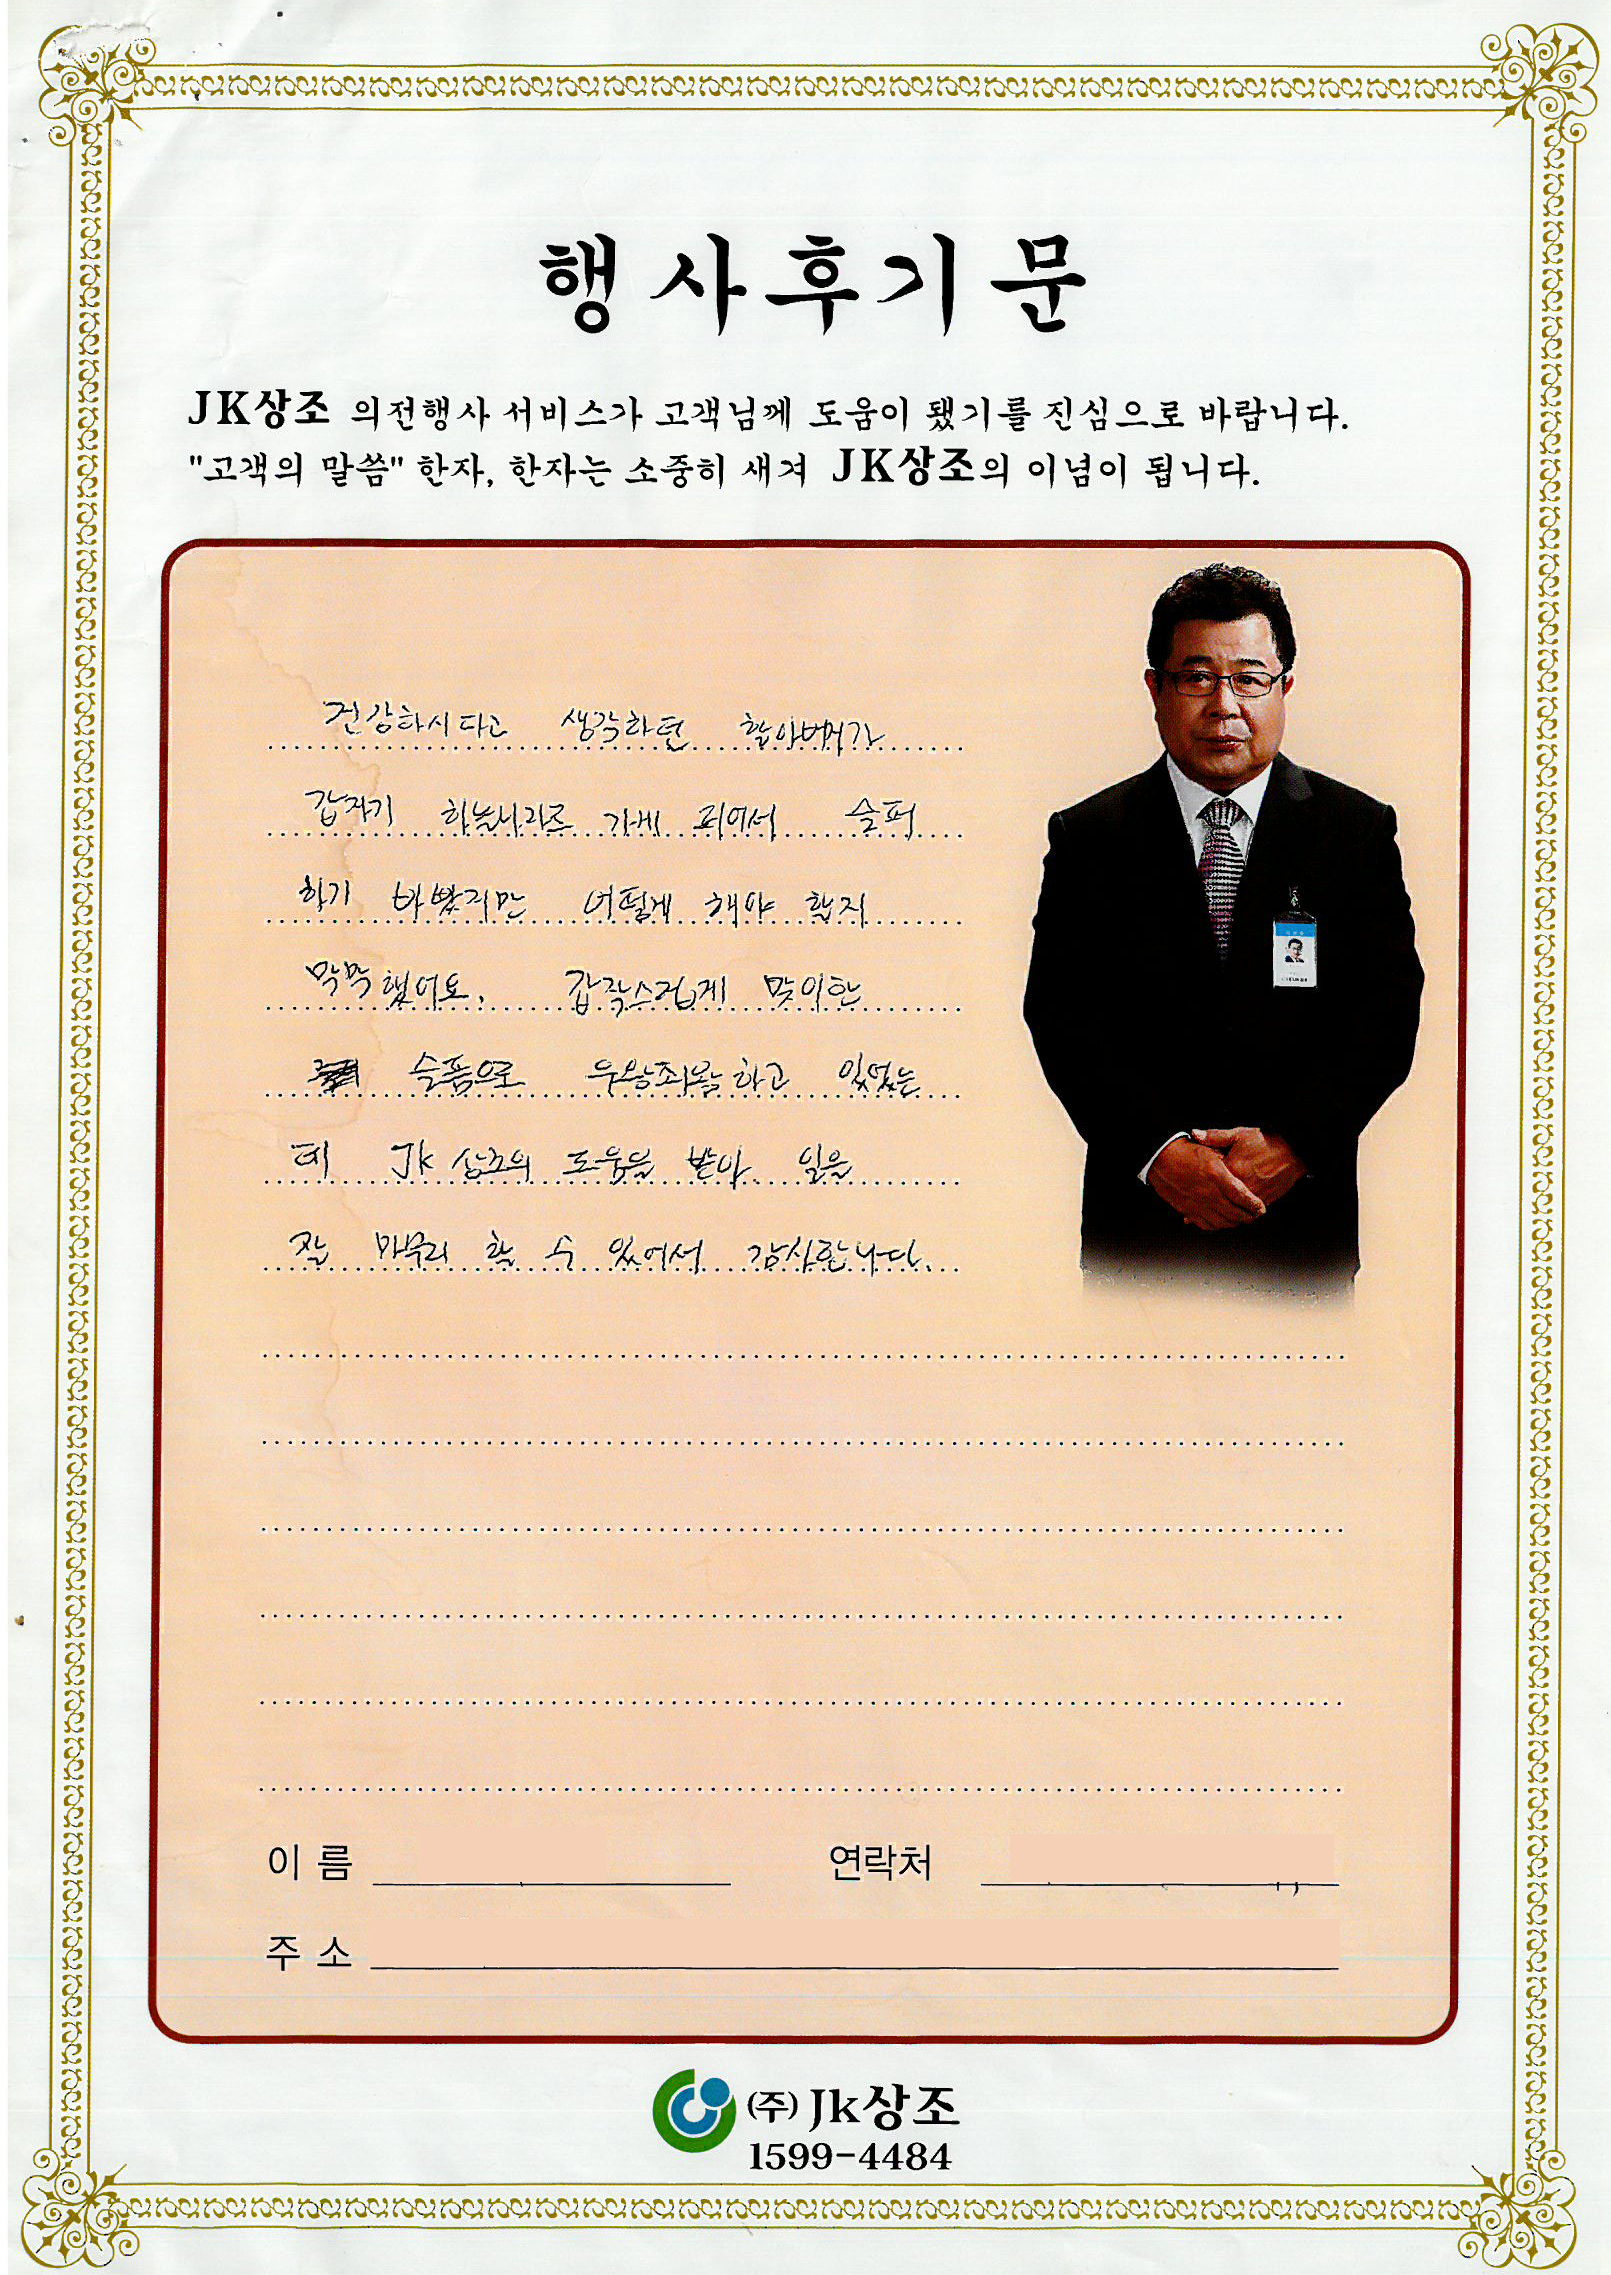 행사후기문
JK상조 의전행사 서비스가 고객님께 도움이 됐기를 진심으로 바랍니다.
"고객의 말씀" 한자, 한자는 소중히 새겨 JK상조의 이념이 됩니다.
건강하시다고 생각하던 할아버지가
갑자기 하늘나라로 가게 되어서 슬퍼
하기 바빴지만 어떻게 해야 할지
막막했어요. 갑작스럽게 맞이한
슬픔으로 우왕좌왕하고 있었는
데 Jk 상조의 도움을 받아 일을
잘 마무리 할 수 있어서 감사합니다.
이 름 연락처
주 소
(주) Jk상조
1599-4484